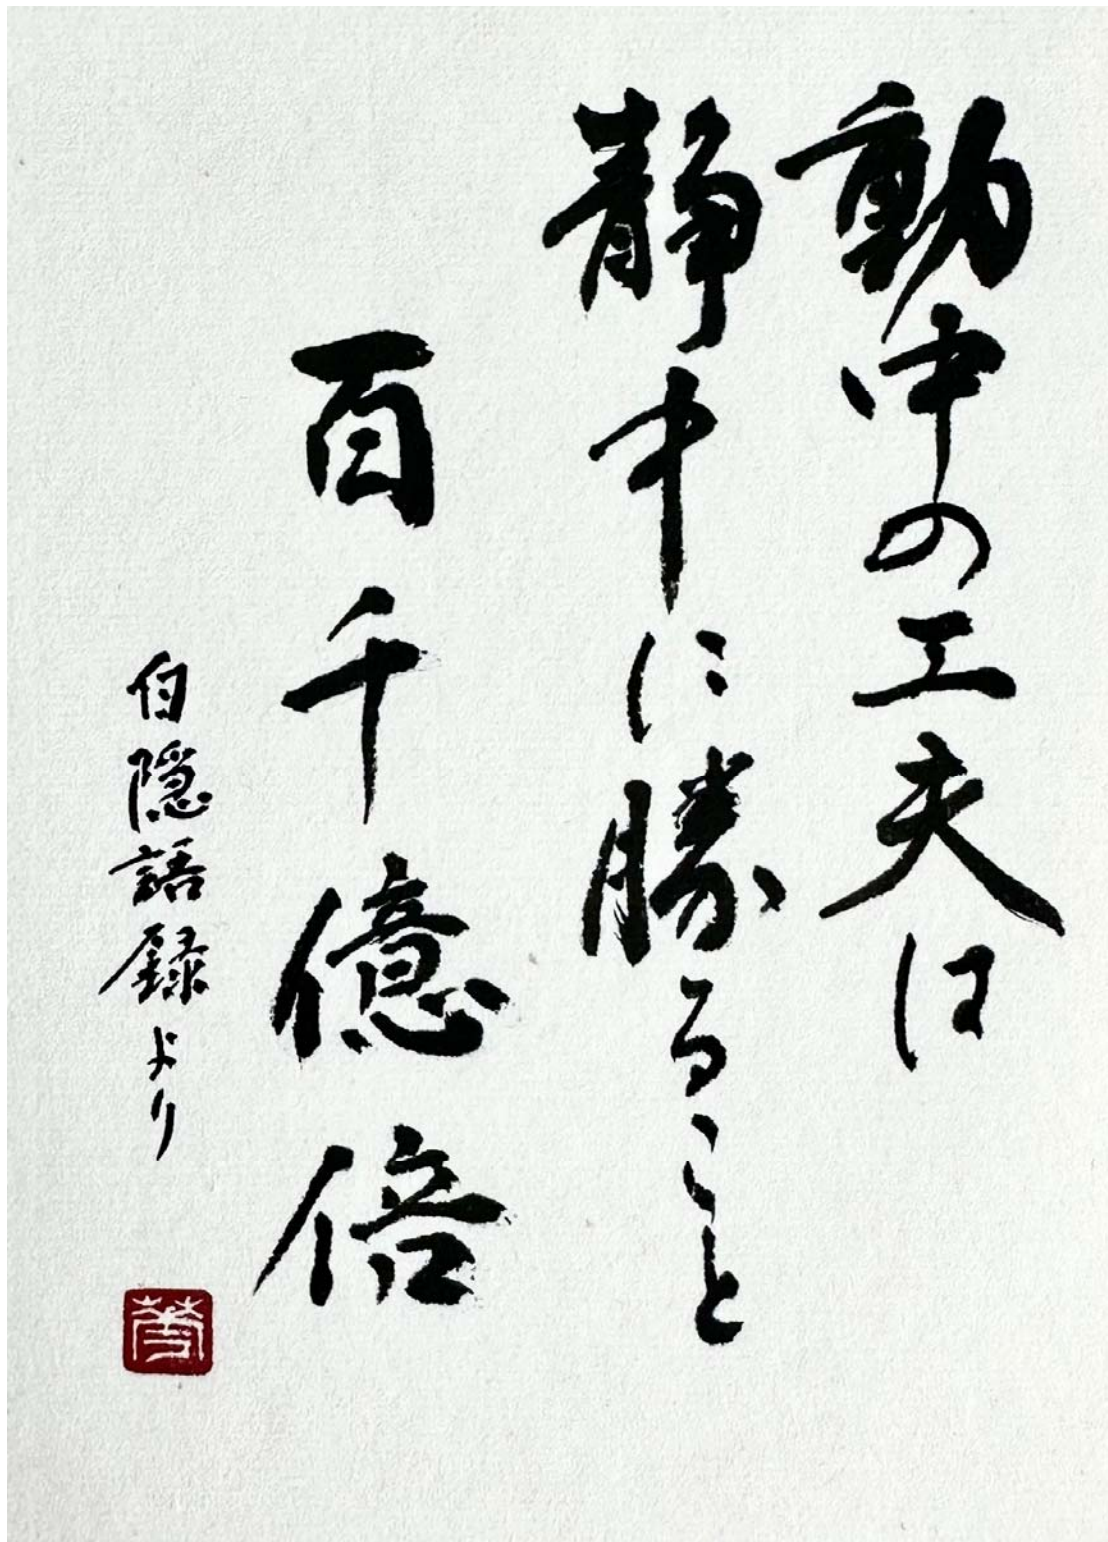 動中の工夫は
静中に勝ること
百千億倍
白隠語録より